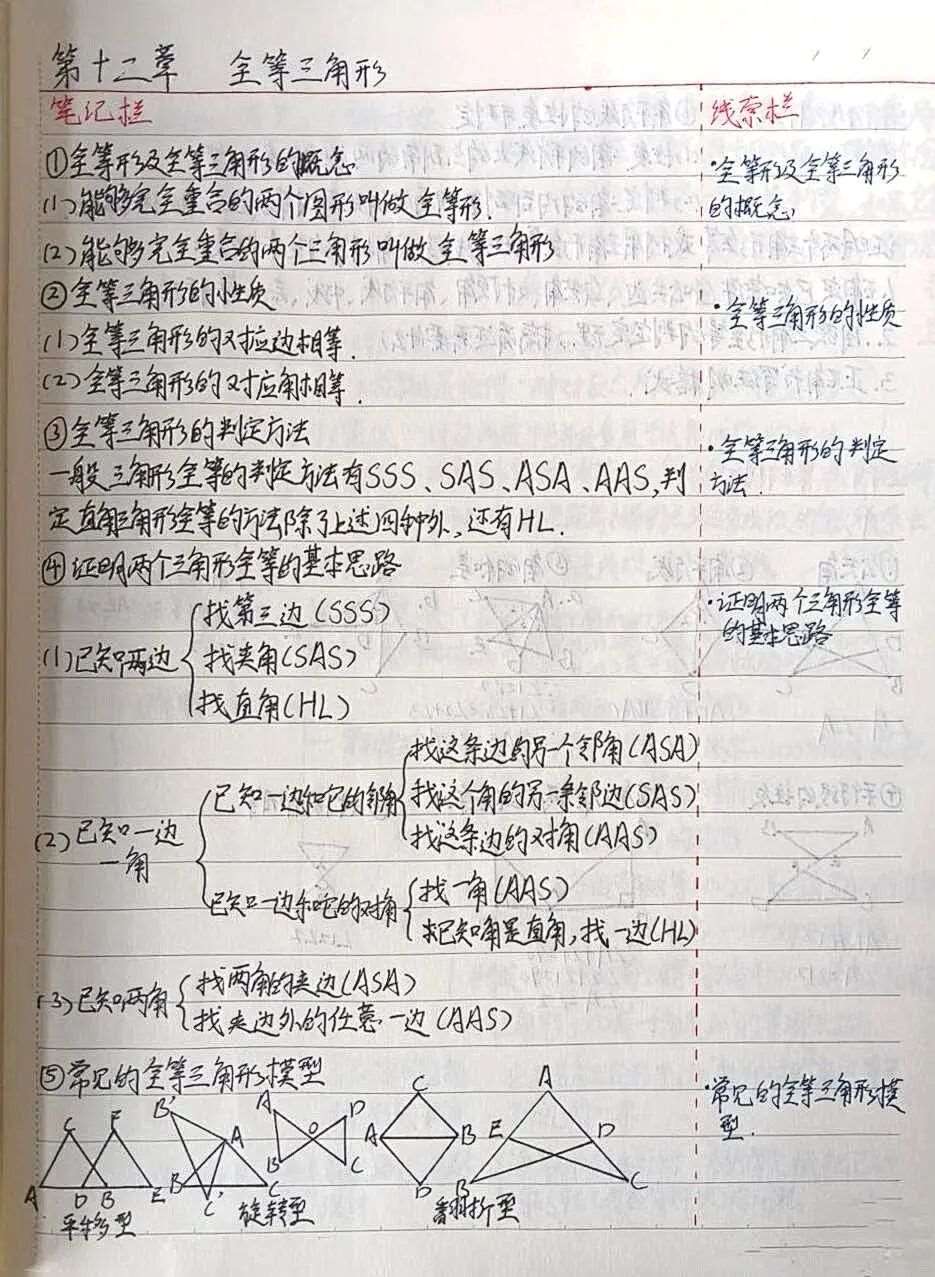 第十二章 全等三角形
笔记栏
线索栏
①全等形及全等三角形的概念
(1)能够完全重合的两个图形叫做全等形.
(2)能够完全重合的两个三角形叫做全等三角形
·全等形及全等三角形
的概念
②全等三角形的小性质
(1)全等三角形的对应边相等.
(2)全等三角形的对应角相等.
·全等三角形的性质
③全等三角形的判定方法
一般三角形全等的判定方法有SSS、SAS、ASA、AAS,判
定直角三角形全等的方法除了上述四种外,还有HL.
·全等三角形的判定
方法.
④证明两个三角形全等的基本思路
(1)已知两边
找第三边(SSS)
找夹角(SAS)
找直角(HL)
·证明两个三角形全等
的基本思路
(2)已知一边
一角
已知一边和它的邻角
找这条边的另一个邻角(ASA)
找这个角的另一条邻边(SAS)
找这条边的对角(AAS)
已知一边和它的对角
找一角(AAS)
已知角是直角,找一边(HL)
(3)已知两角
找两角的夹边(ASA)
找夹边外的任意一边(AAS)
⑤常见的全等三角形模型
·常见的全等三角形模
型.
C F
A D B E
平移型
B' A
B C' C
A D
O
B C
旋转型
C
A B
D
A
E D
B C
翻折型